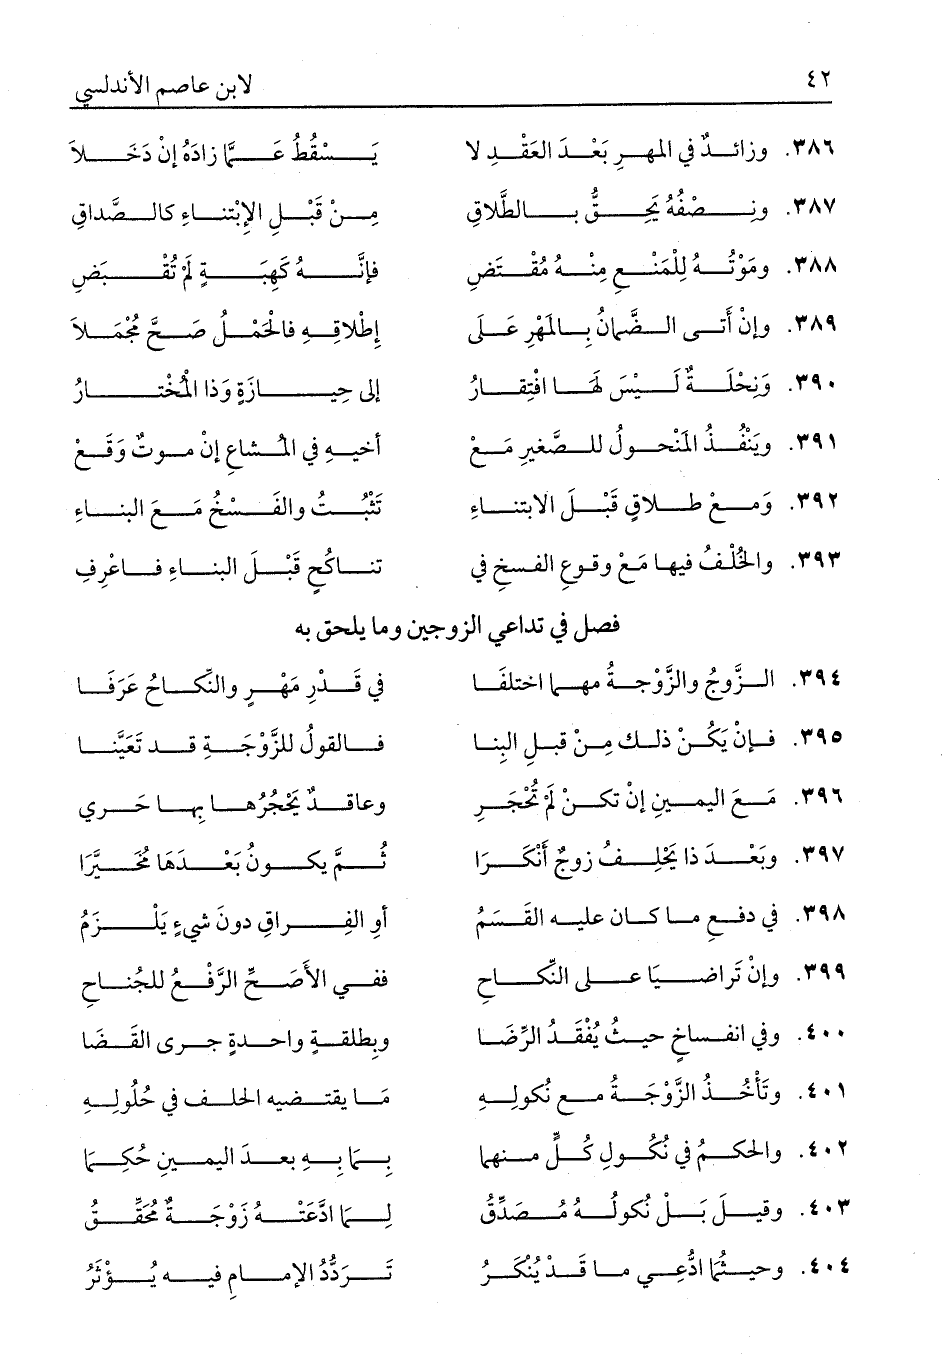 ٤٢ لابن عاصم الأندلسي
٣٨٦. وزائدٌ في المهرِ بَعْدَ العَقْدِ لا يَسْقُطُ عَمَّا زادَهُ إنْ دَخَلاَ
٣٨٧. ونِصْفُهُ يَحِقُّ بالطَّلاقِ مِنْ قَبْلِ الإبْتناءِ كالصَّداقِ
٣٨٨. ومَوْتُهُ لِلْمَنْعِ مِنْهُ مُقْتَضِ فإنَّهُ كَهِبَةٍ لَمْ تُقْبَضِ
٣٨٩. وإنْ أَتى الضَّمانُ بالمَهْرِ عَلَى إطْلاقِهِ فالحْمْلُ صَحَّ مُجْمَلاَ
٣٩٠. وَنِحْلَةٌ لَيْسَ لَها افْتِقارُ إلى حِيازَةٍ وَذا المُخْتارُ
٣٩١. ويَنْفُذُ المَنْحولُ للصَّغيرِ مَعْ أخيهِ في المُشاعِ إنْ موتٌ وَقَعْ
٣٩٢. وَمعْ طلاقٍ قَبْلَ الابتناءِ تَثْبُتُ والفَسْخُ مَعَ البناءِ
٣٩٣. والخُلْفُ فيها مَعْ وقوعِ الفسخِ في تناكُحٍ قَبْلَ البناءِ فاعْرِفِ
فصل في تداعي الزوجين وما يلحق به
٣٩٤. الزَّوجُ والزَّوْجةُ مهما اختلفَا في قَدْرِ مَهْرٍ والنِّكاحُ عَرَفَا
٣٩٥. فإنْ يَكُنْ ذلك مِنْ قبلِ البِنا فالقولُ للزَّوْجَةِ قد تَعَيَّنا
٣٩٦. مَعَ اليمينِ إنْ تكنْ لَمْ تُحْجَرِ وعاقدٌ يَحْجُرُها بها حَري
٣٩٧. وبَعْدَ ذا يَحْلِفُ زوجٌ أَنْكَرَا ثُمَّ يكونُ بَعْدَهَا مُخَيَّرَا
٣٩٨. في دفعِ ما كان عليه القَسَمُ أو الفِراقِ دونَ شيءٍ يَلْزَمُ
٣٩٩. وإنْ تَراضَيَا على النِّكاحِ ففي الأَصَحِّ الرَّفْعُ للجُناحِ
٤٠٠. وفي انفساخٍ حيثُ يُفْقَدُ الرِّضَا وبِطلقةٍ واحدةٍ جرى القَضَا
٤٠١. وتَأْخُذُ الزَّوْجَةُ مع نُكولِهِ مَا يقتضيه الخلف في حُلُولِهِ
٤٠٢. والحكمُ في نُكُولِ كُلٍّ منهما بِمَا بِهِ بعدَ اليمينِ حُكِمَا
٤٠٣. وقيلَ بَلْ نُكولُهُ مُصَدِّقُ لِمَا ادَّعَتْهُ زَوْجَةٌ مُحَقِّقُ
٤٠٤. وحيثُما ادُّعِي ما قَدْ يُنْكَرُ تَرَدُّدُ الإمامِ فيه يُؤْثَرُ